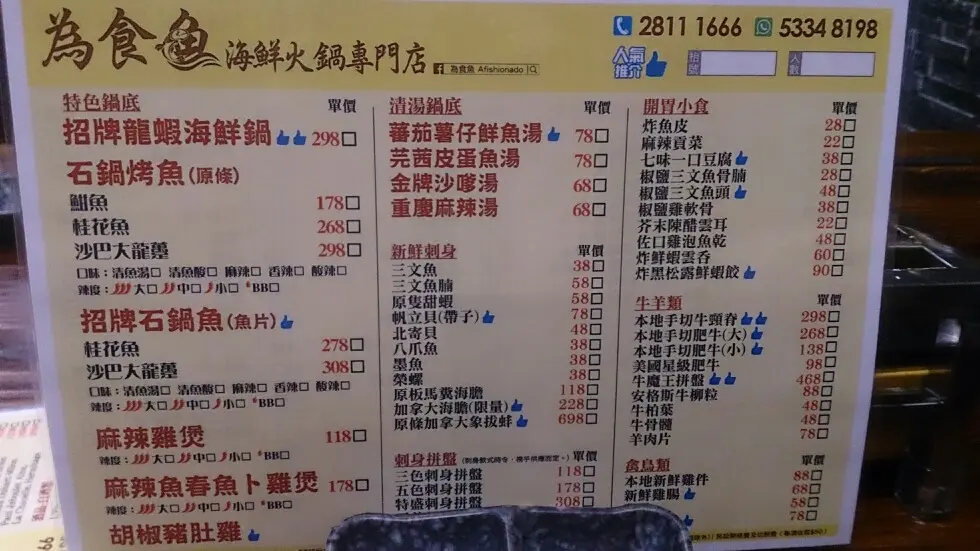 為食魚 海鮮火鍋專門店
為食魚 Afishionado
2811 1666 5334 8198
人氣推介
枱號
人數
特色鍋底 單價
招牌龍蝦海鮮鍋 298
石鍋烤魚(原條)
鮒魚 178
桂花魚 268
沙巴大龍躉 298
口味：清魚湯 清魚酸 麻辣 香辣 酸辣
辣度： 大 中 小 BB
招牌石鍋魚(魚片)
桂花魚 278
沙巴大龍躉 308
口味：清魚湯 清魚酸 麻辣 香辣 酸辣
辣度： 大 中 小 BB
麻辣雞煲 118
辣度： 大 中 小 BB
麻辣魚春魚卜雞煲 178
辣度： 大 中 小 BB
胡椒豬肚雞
清湯鍋底 單價
蕃茄薯仔鮮魚湯 78
芫茜皮蛋魚湯 78
金牌沙嗲湯 68
重慶麻辣湯 68
新鮮刺身 單價
三文魚 38
三文魚腩 58
原隻甜蝦 58
帆立貝(帶子) 78
北寄貝 48
八爪魚 38
墨魚 38
螢螺 38
原板馬糞海膽 118
加拿大海膽(限量) 228
原條加拿大象拔蚌 698
刺身拼盤 單價
三色刺身拼盤 118
五色刺身拼盤 178
特盛刺身拼盤 308
開胃小食 單價
炸魚皮 28
麻辣貢菜 22
七味一口豆腐 38
椒鹽三文魚骨腩 28
椒鹽三文魚頭 48
椒鹽雞軟骨 38
芥末陳醋雲耳 22
佐口雞泡魚乾 48
炸鮮蝦雲吞 60
炸黑松露鮮蝦餃 90
牛羊類 單價
本地手切牛頸脊 298
本地手切肥牛(大) 268
本地手切肥牛(小) 138
美國星級肥牛 98
牛魔王拼盤 468
安格斯牛柳粒 88
牛柏葉 48
牛骨髓 48
羊肉片 78
禽鳥類 單價
本地新鮮雞件 88
新鮮雞腸 68
58
78